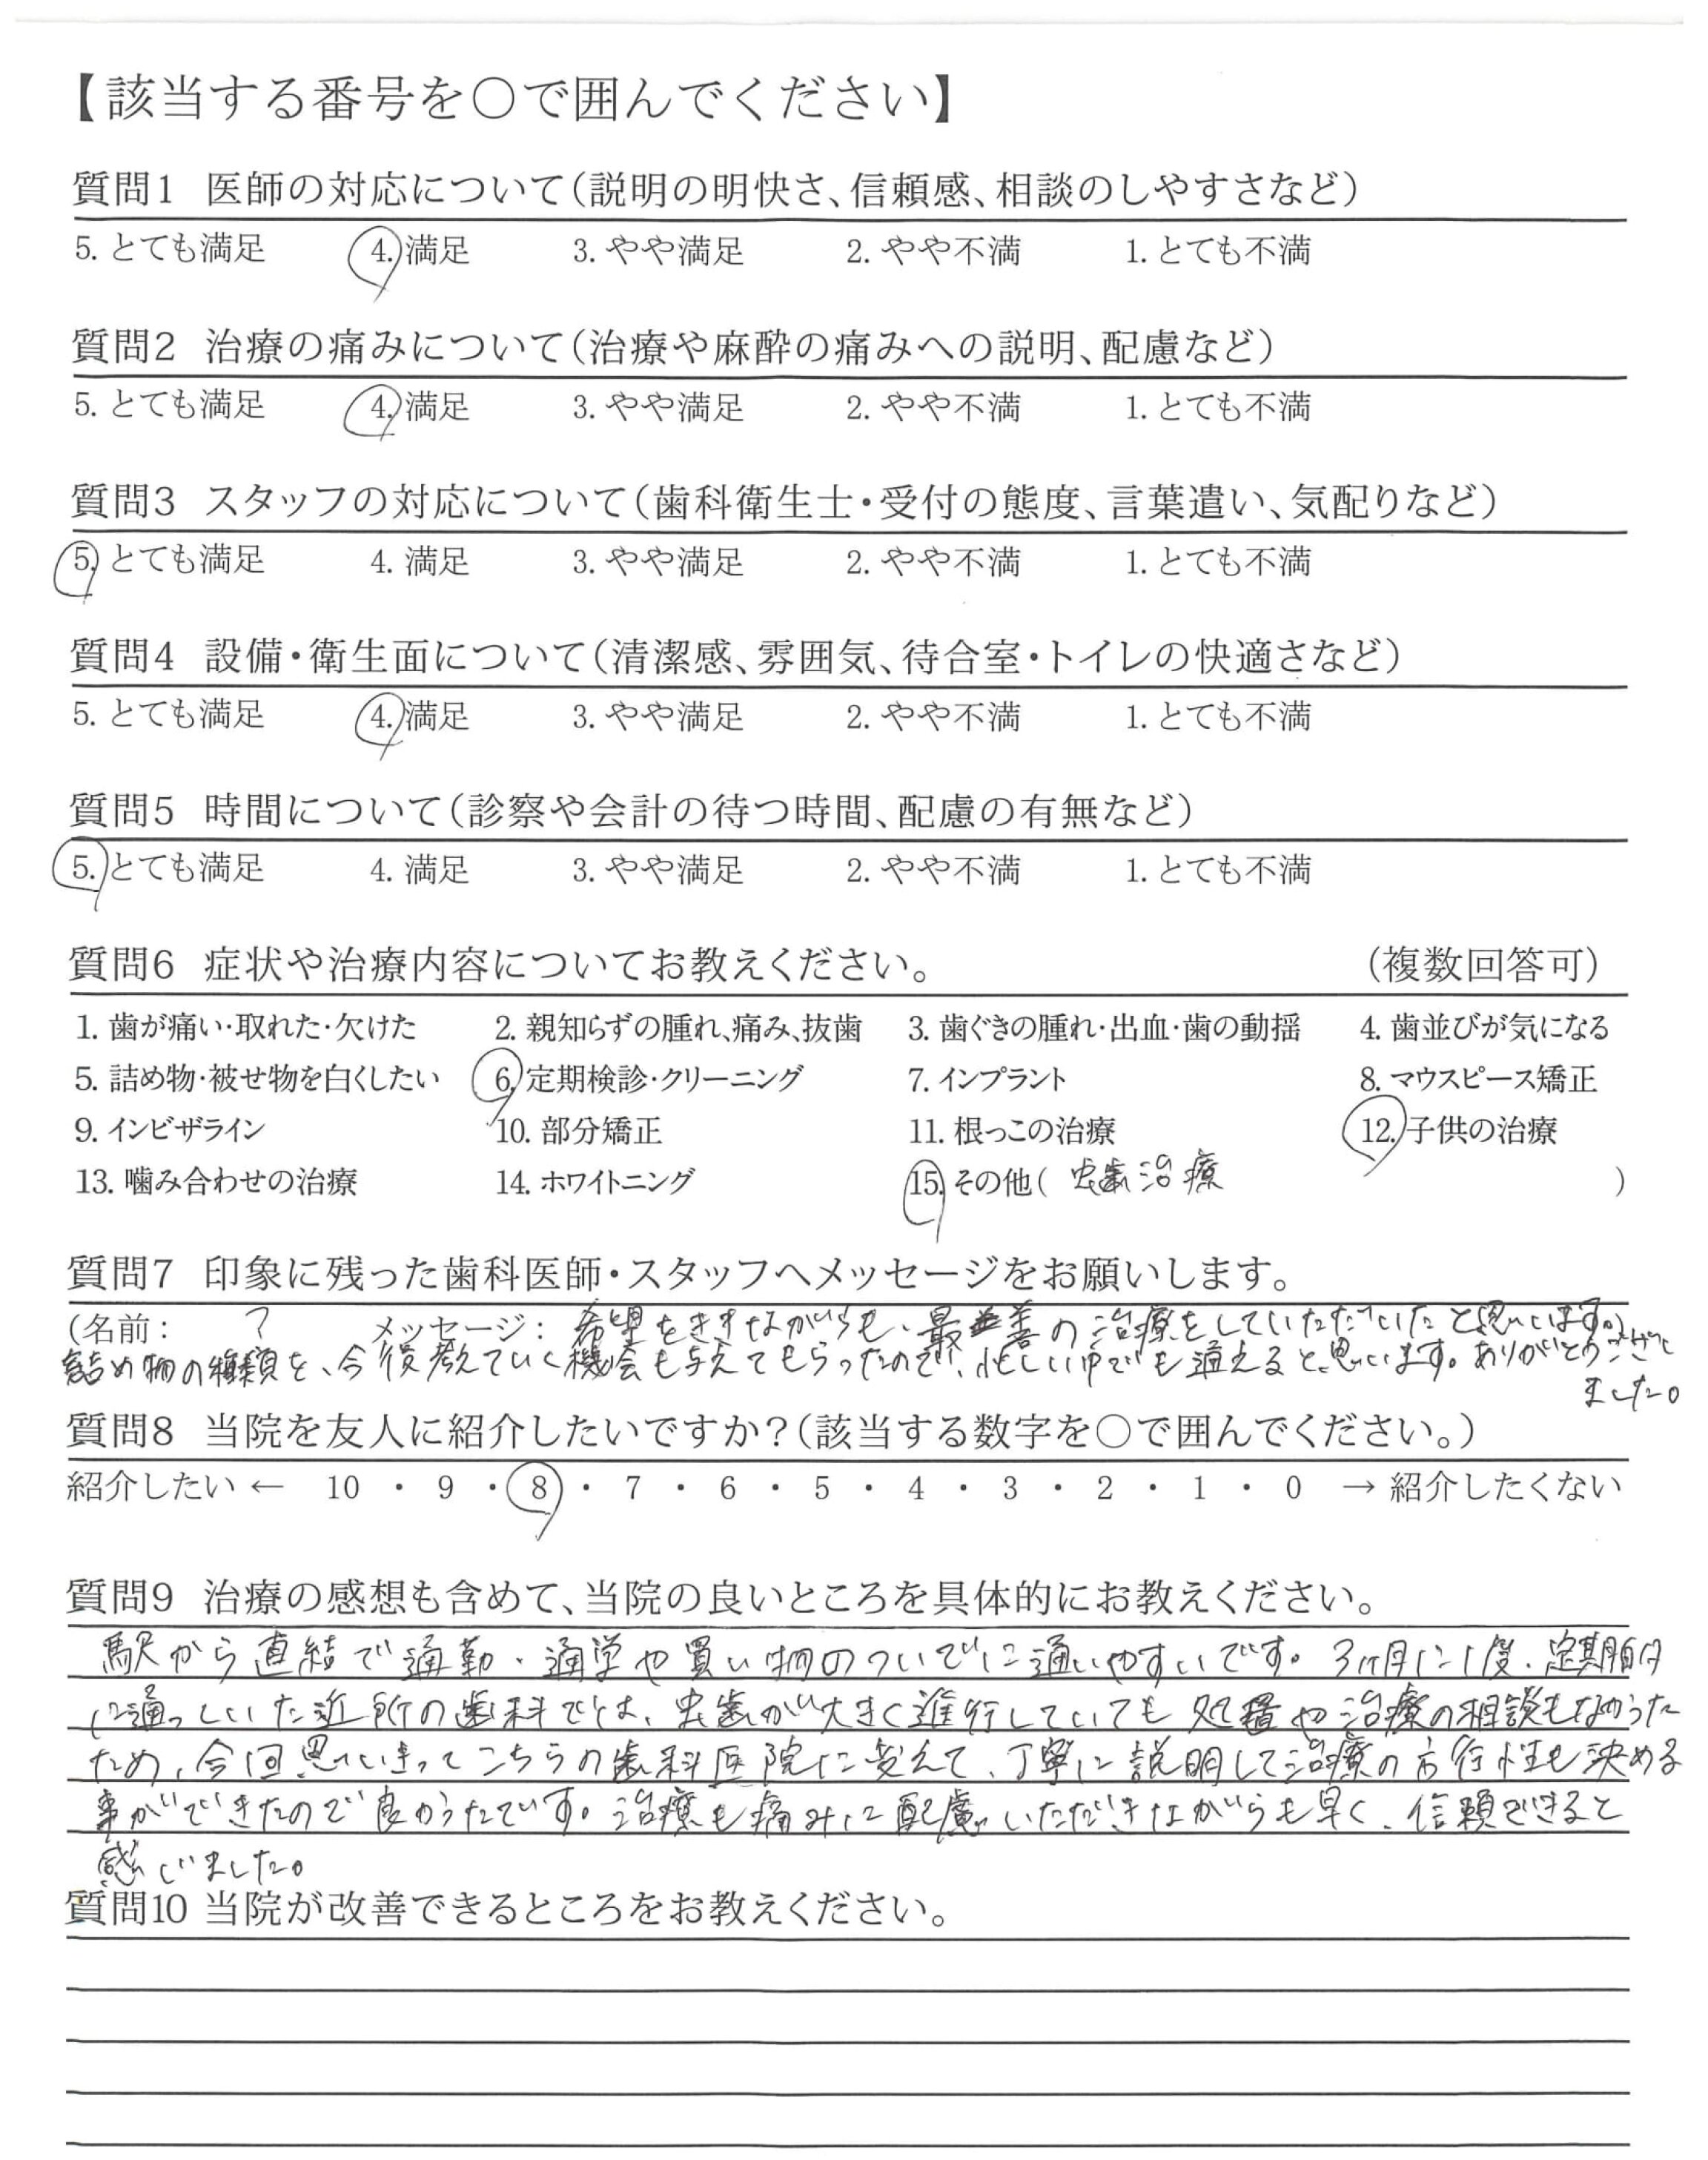 【該当する番号を○で囲んでください】
質問1 医師の対応について(説明の明快さ、信頼感、相談のしやすさなど)
5. とても満足 4. 満足 3. やや満足 2. やや不満 1. とても不満
質問2 治療の痛みについて(治療や麻酔の痛みへの説明、配慮など)
5. とても満足 4. 満足 3. やや満足 2. やや不満 1. とても不満
質問3 スタッフの対応について(歯科衛生士・受付の態度、言葉遣い、気配りなど)
5. とても満足 4. 満足 3. やや満足 2. やや不満 1. とても不満
質問4 設備・衛生面について(清潔感、雰囲気、待合室・トイレの快適さなど)
5. とても満足 4. 満足 3. やや満足 2. やや不満 1. とても不満
質問5 時間について(診察や会計の待つ時間、配慮の有無など)
5. とても満足 4. 満足 3. やや満足 2. やや不満 1. とても不満
質問6 症状や治療内容についてお教えください。 (複数回答可)
1. 歯が痛い・取れた・欠けた 2. 親知らずの腫れ、痛み、抜歯 3. 歯ぐきの腫れ・出血・歯の動揺 4. 歯並びが気になる
5. 詰め物・被せ物を白くしたい 6. 定期検診・クリーニング 7. インプラント 8. マウスピース矯正
9. インビザライン 10. 部分矯正 11. 根っこの治療 12. 子供の治療
13. 噛み合わせの治療 14. ホワイトニング 15. その他( 虫歯治療 )
質問7 印象に残った歯科医師・スタッフへメッセージをお願いします。
(名前: ? メッセージ: 希望をききながらも、最善の治療をしていただいたと思います。)
詰め物の種類を、今後考えていく機会も与えてもらったので、忙しい中でも通えると思います。ありがとうござい
ました。
質問8 当院を友人に紹介したいですか?(該当する数字を○で囲んでください。)
紹介したい ← 10 ・ 9 ・ 8 ・ 7 ・ 6 ・ 5 ・ 4 ・ 3 ・ 2 ・ 1 ・ 0 → 紹介したくない
質問9 治療の感想も含めて、当院の良いところを具体的にお教えください。
駅から直結で通勤・通学や買い物のついでに通いやすいです。3ヶ月に1度、定期的
に通っていた近所の歯科では、虫歯が大きく進行していても処置や治療の相談もなかった
ため、今回思いきってこちらの歯科医院に変えて、丁寧に説明して治療の方向性も決める
事ができたので良かったです。治療も痛みに配慮いただきながらも早く、信頼できると
感じました。
質問10 当院が改善できるところをお教えください。